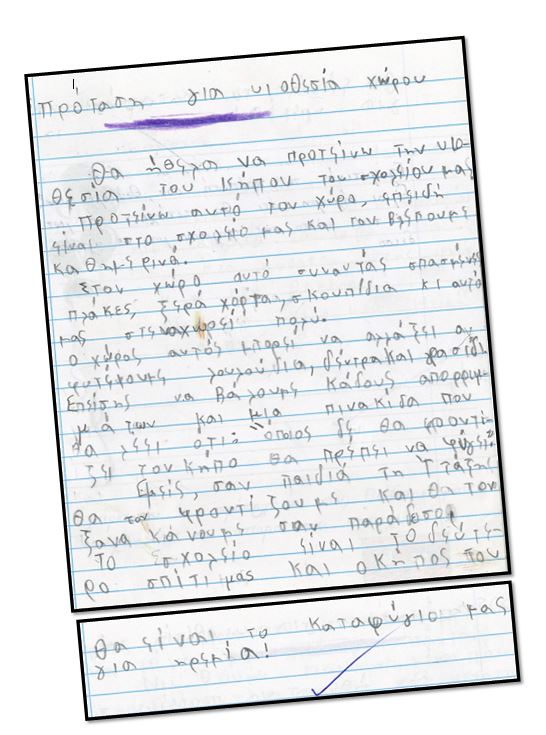 Πρόταση για υιοθεσία χώρου
Θα ήθελα να προτείνω την υιο-
θεσία του κήπου του σχολείου μας
Προτείνω αυτό τον χώρο, επειδή
είναι στο σχολείο μας και τον βλέπουμε
καθημερινά.
Στον χώρο αυτό συναντάς σπασμένες
πλάκες, ξερά χόρτα, σκουπίδια κι αυτό
μας στεναχωρεί πολύ.
Ο χώρος αυτός μπορεί να αλλάξει αν
φυτέψουμε λουλούδια, δέντρα και γρασίδι
Επίσης να βάλουμε κάδους απορριμ-
μάτων και μια πινακίδα που
θα λέει ότι: "όποιος δε θα φροντί-
ζει τον κήπο θα πρέπει να φύγει"
Εμείς, σαν παιδιά της Γ τάξης
θα τον φροντίζουμε και θα τον
ξανακάνουμε σαν παράδεισο
Το σχολείο είναι το δεύτε-
ρο σπίτι μας και ο κήπος του
θα είναι το καταφύγιο μας
για ηρεμία!